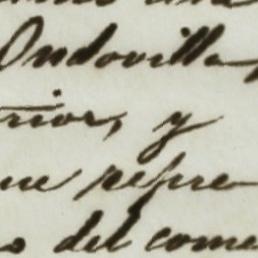 Ondovilla,
rior, y
ue repre
o del come